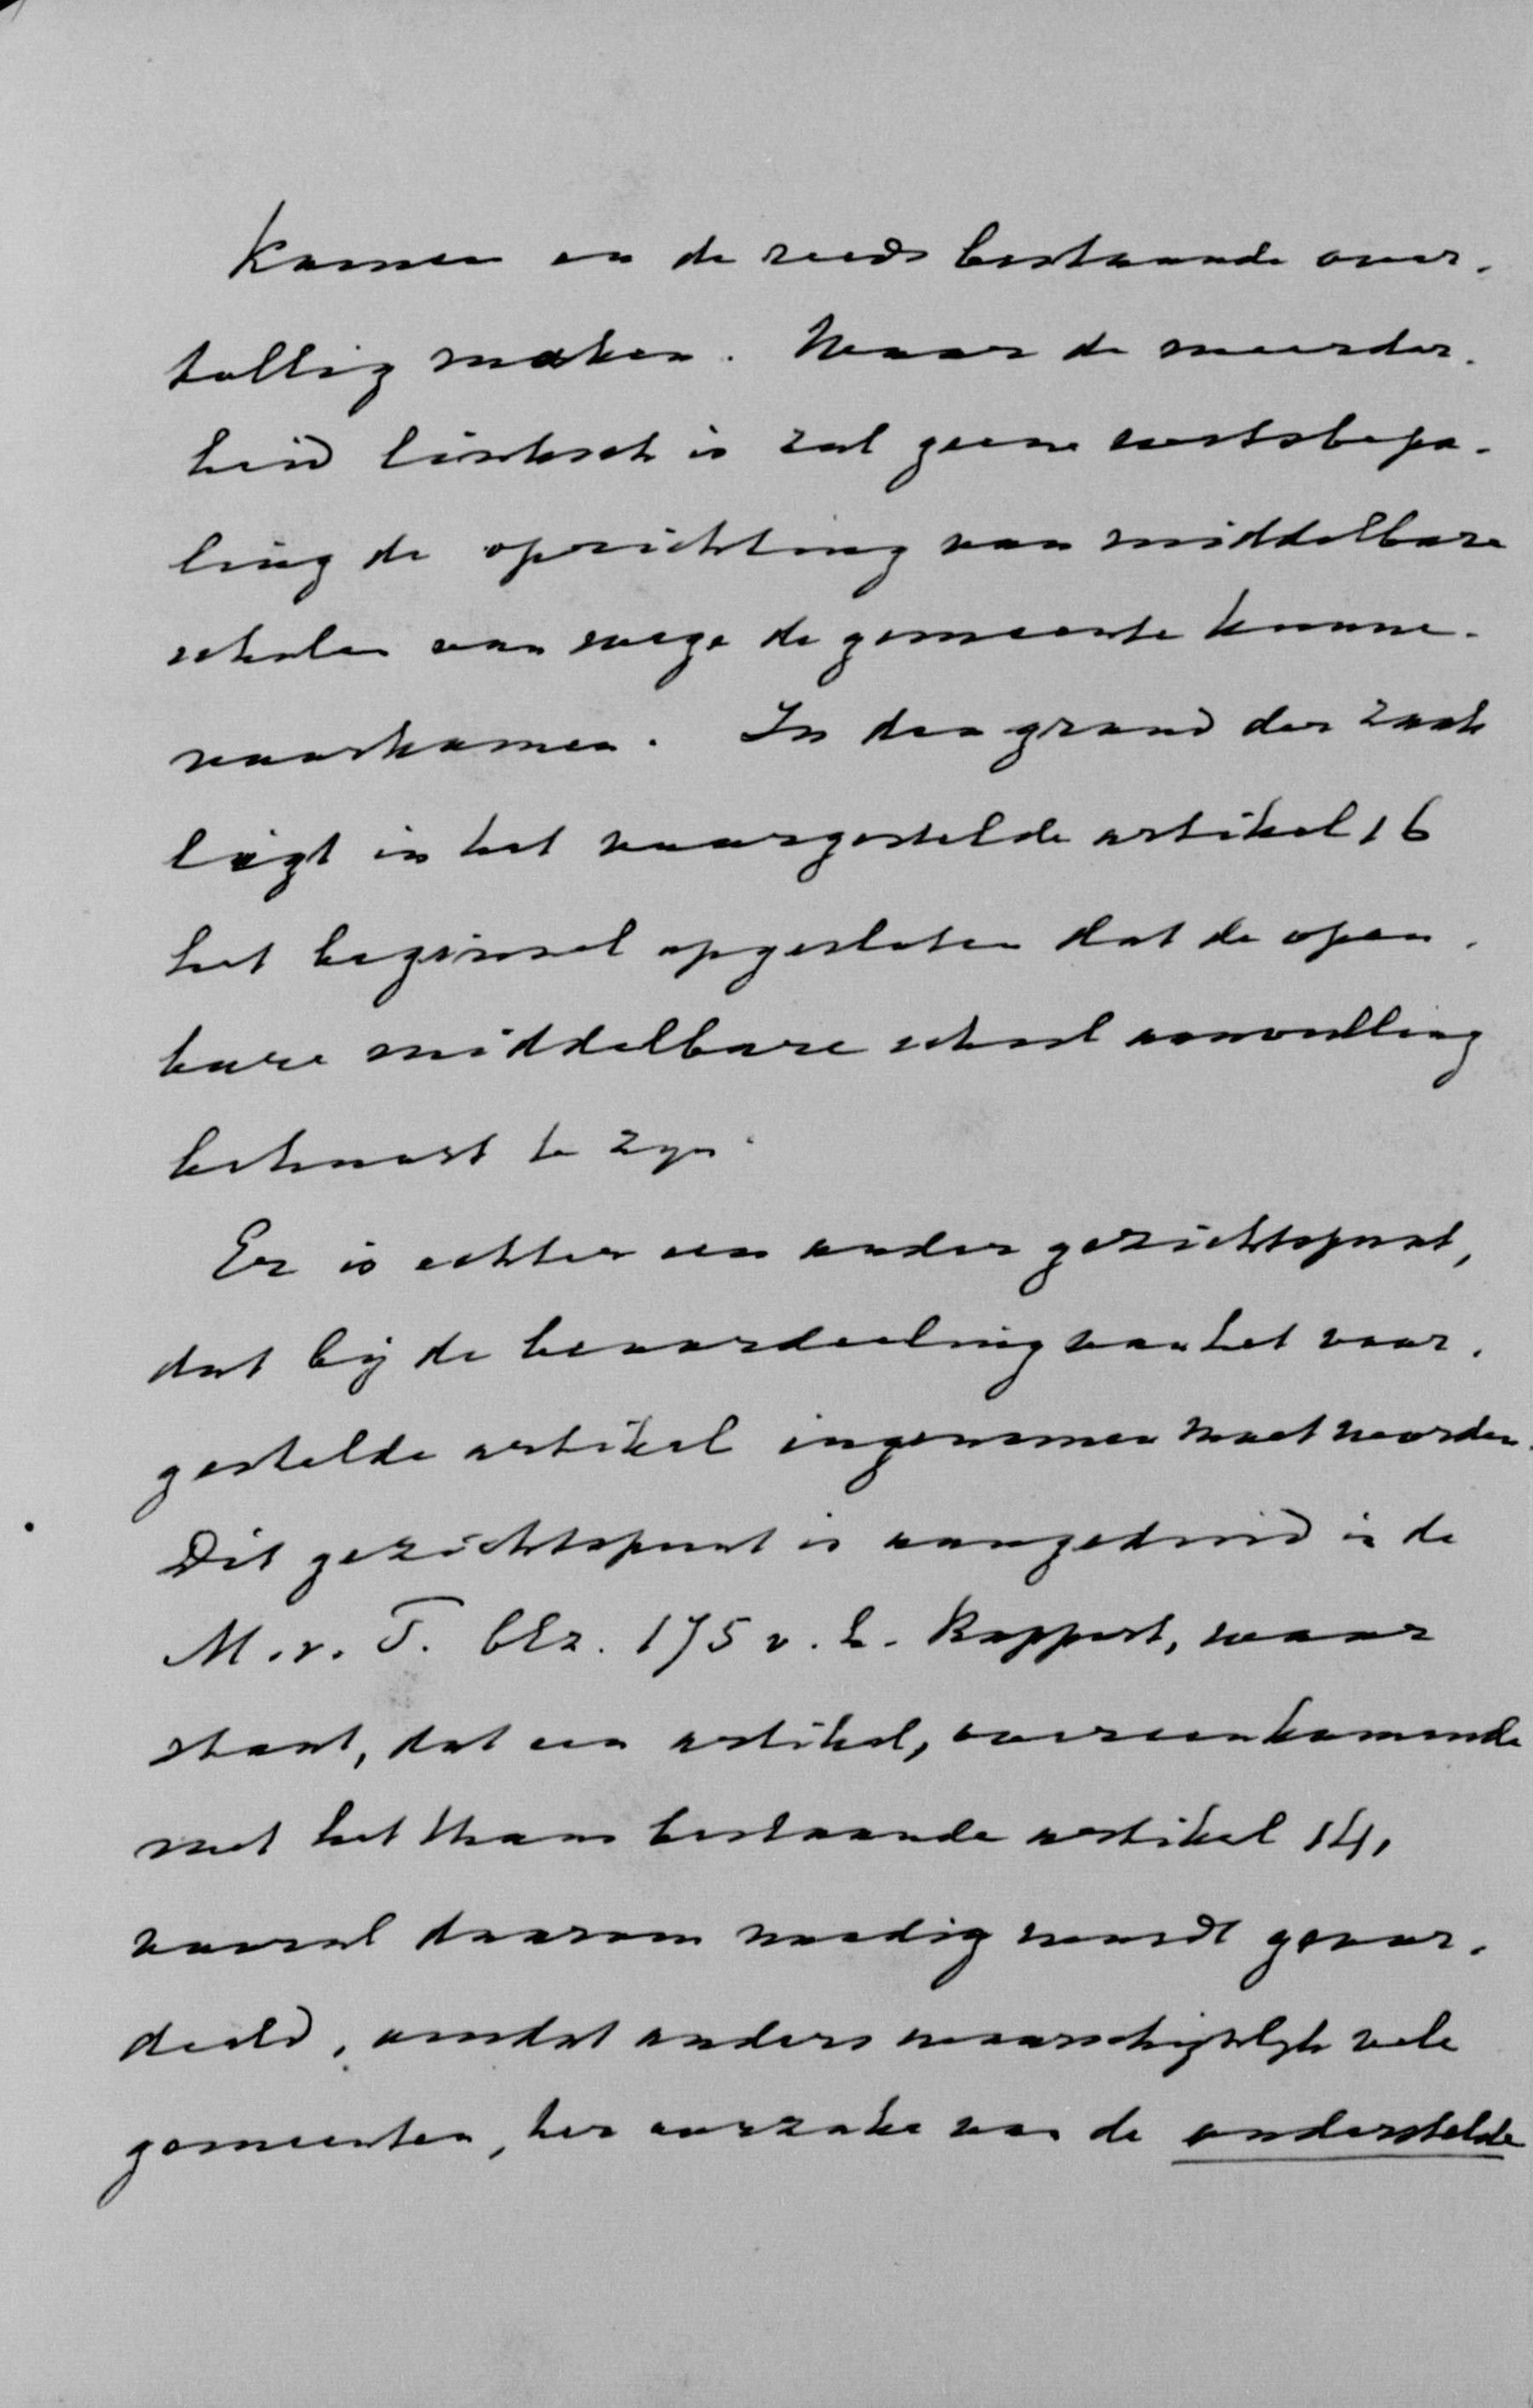 komen en de reeds bestaande over-
tollig maken. Waar de meerder-
heid linksch is zal geene wetsbepa-
ling de oprichting van middelbare
scholen van wege de gemeente kunnen
voorkomen. In den grond der zaak
ligt in het voorgestelde artikel 16
het beginsel opgesloten dat de open-
bare middelbare school aanvulling
behoort te zyn.
Er is echter een ander gezichtspunt,
dat bij de beoordeeling van het voor-
gestelde artikel ingenomen moet worden.
Dit gezichtspunt is aangeduid in de
M. v. T. blz. 175 v. h. Rapport, waar
staat, dat een artikel, overeenkomende
met het thans bestaande artikel 14,
vooral daarom noodig wordt geoor-
deeld, omdat anders waarschijnlijk vele
gemeenten, ter oorzake van de onderstelde